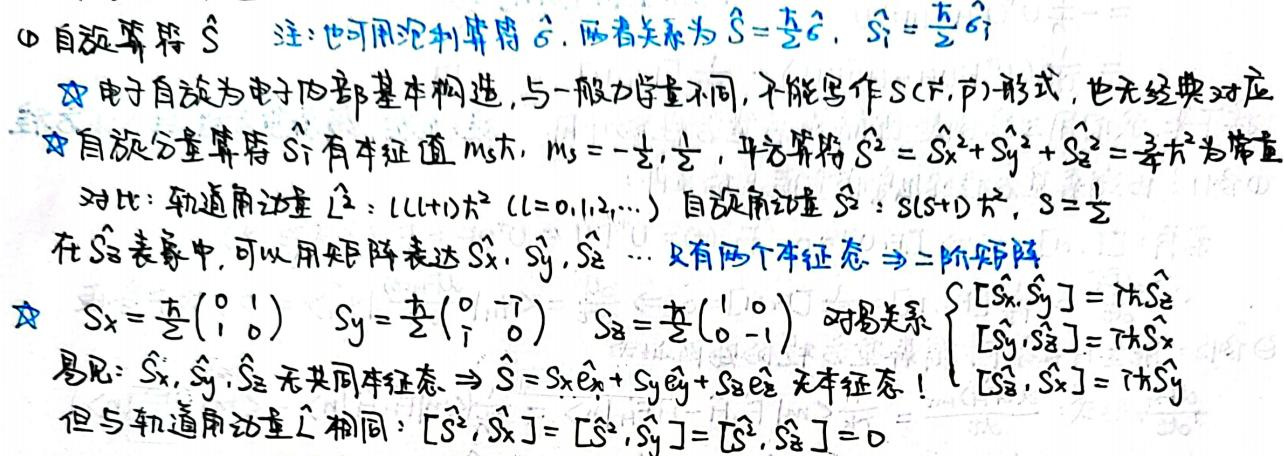 ① 自旋算符 Ŝ 注:也可用泡利算符 σ̂, 两者关系为 Ŝ = ħ/2 σ̂, Ŝᵢ = ħ/2 σ̂ᵢ
☆ 电子自旋为电子内部基本构造,与一般力学量不同,不能写作 S(r⃗, p⃗) 形式,也无经典对应
☆ 自旋分量算符 Ŝᵢ 有本征值 mₛħ, mₛ = -1/2, 1/2, 平方算符 Ŝ² = Ŝx² + Ŝy² + Ŝz² = 3/4 ħ² 为常量
对比:轨道角动量 L̂²: l(l+1)ħ² (l=0,1,2,…) 自旋角动量 Ŝ²: s(s+1)ħ², s = 1/2
在 Ŝz 表象中,可以用矩阵表达 Ŝx, Ŝy, Ŝz … 只有两个本征态 ⇒ 二阶矩阵
☆ Sx = ħ/2 (0 1; 1 0) Sy = ħ/2 (0 -i; i 0) Sz = ħ/2 (1 0; 0 -1) 对易关系 { [Ŝx, Ŝy] = iħŜz
[Ŝy, Ŝz] = iħŜx
[Ŝz, Ŝx] = iħŜy
易见: Ŝx, Ŝy, Ŝz 无共同本征态 ⇒ Ŝ = Sxêx + Syêy + Szêz 无本征态!
但与轨道角动量 L̂ 相同: [Ŝ², Ŝx] = [Ŝ², Ŝy] = [Ŝ², Ŝz] = 0